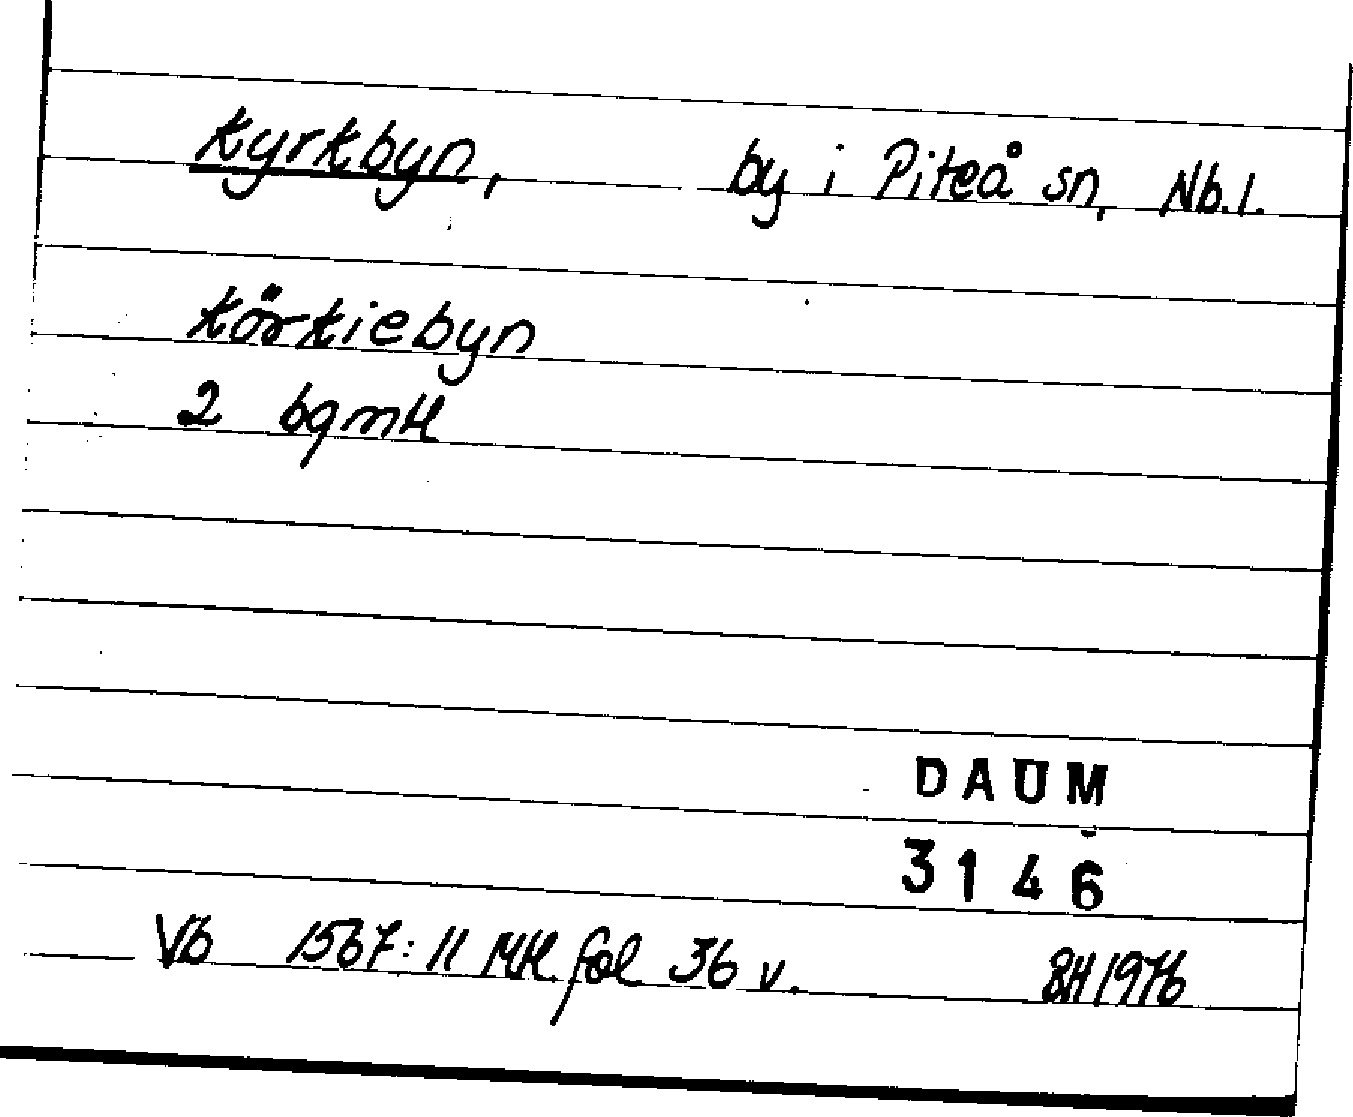 Kyrkbyn, by i Piteå sn, Nb. l.
Körkiebyn
2 bgmtl
DAUM
3146
Vb 1567:11 Mtl. fol 36 v. BH 1976